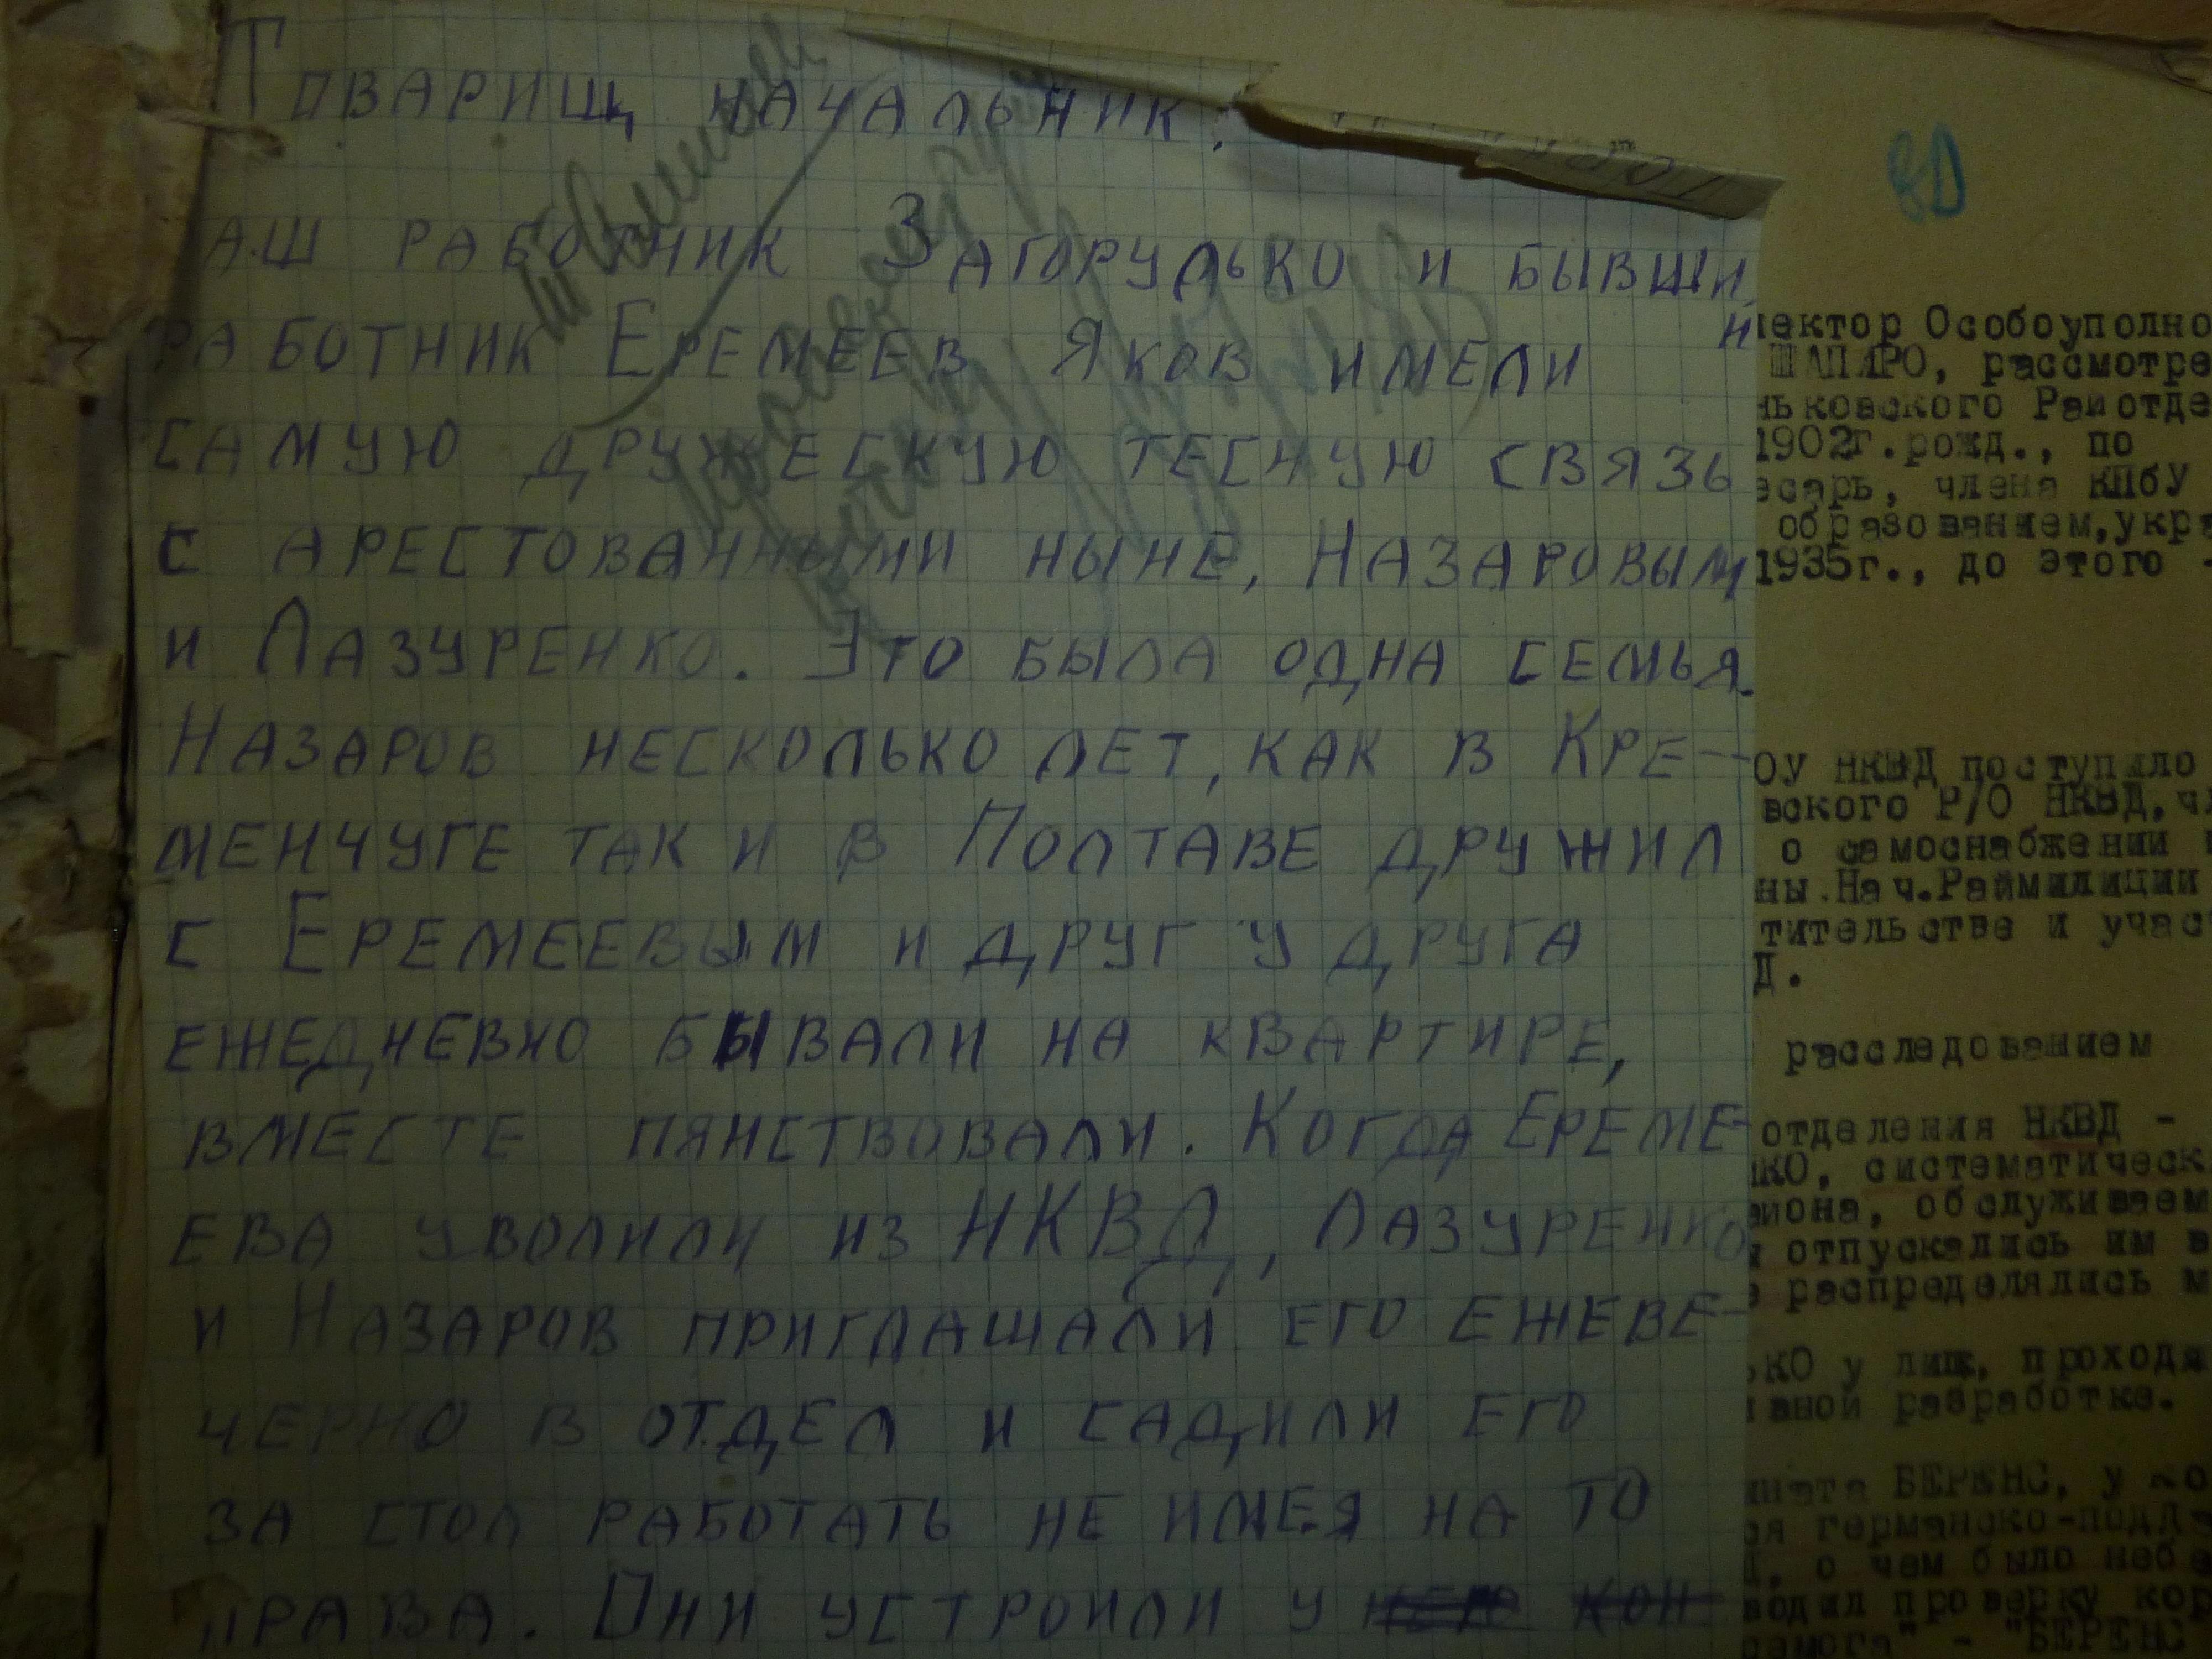 Товарищ начальник.
аш работник Загорулько и бывший
работник Еремеев Яков имели
самую дружескую тесную связь
с арестованными ныне, Назаровым
и Лазуренко. Это была одна семья.
Назаров несколько лет, как в Кре-
менчуге так и в Полтаве дружил
с Еремеевым и друг у друга
ежедневно бывали на квартире,
вместе пянствовали. Когда Ереме-
ева уволили из НКВД, Лазуренко
и Назаров приглашали его ежеве-
черно в отдел и садили его
за стол работать не имея на то
права. Они устроили у
пектор Особоуполно
ШАПИРО, рассмотре
ньковского Райотде
1902г.рожд., по
есарь, члена КПбУ
образованием,укра
1935г., до этого -
ОУ НКВД поступило
вского Р/О НКВД,ч
о самоснабжении
ны.Нач.Раймилиции
тительстве и учас
Д.
расследованием
отделения НКВД -
НКО, систематическ
айона, обслуживаем
отпускались им в
распределялись м
ЬКО у лиц, проходя
ивной разработке.
ината БЕРЕНС, у ко
ся германско-подда
о чем было
водил проверку кор
ремога" - "БЕРЕНС